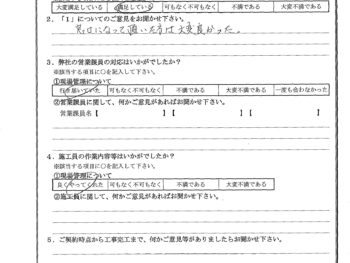 大変満足している 満足している 可もなく不可もなく 不満である 大変不満である
2．「1」についてのご意見をお聞かせ下さい。
大変良かった。
3．弊社の営業課員の対応はいかがでしたか？
※該当する項目に○を記入して下さい。
①現場管理について
行き届いていた 可もなく不可もなく 不満である 大変不満である 一度も会わなかった
②営業課員に関して、何かご意見があればお聞かせ下さい。
営業課員名【 】【 】【 】
4．施工員の作業内容等はいかがでしたか？
※該当する項目に○を記入して下さい。
①現場管理について
良くやってくれた 可もなく不可もなく 不満である 大変不満である
②施工員に関して、何かご意見があればお聞かせ下さい。
5．ご契約時点から工事完工まで、何かご意見等がありましたらお聞かせ下さい。